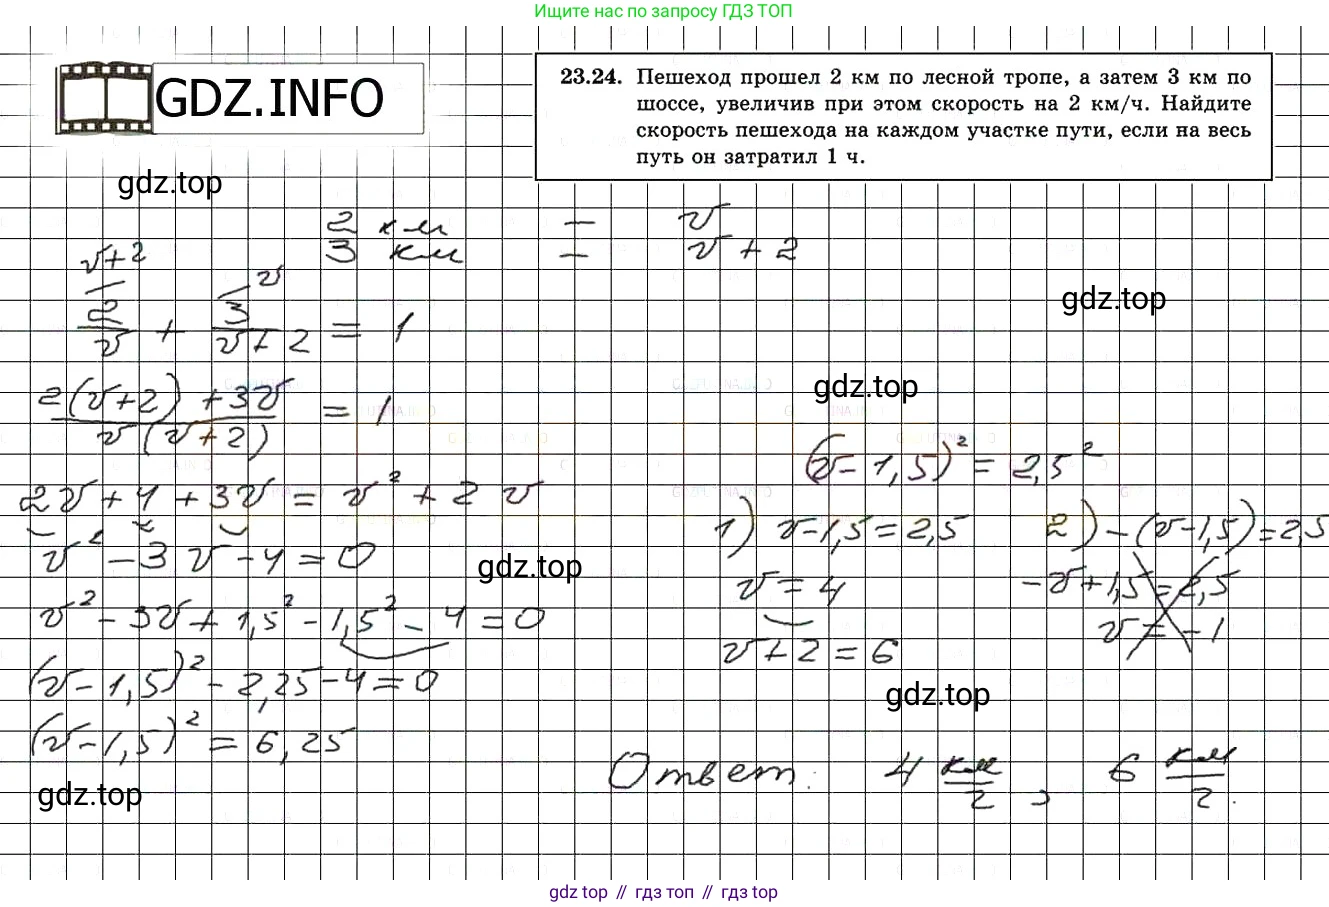 Ищите нас по запросу ГДЗ ТОП
GDZ.INFO
23.24. Пешеход прошел 2 км по лесной тропе, а затем 3 км по
шоссе, увеличив при этом скорость на 2 км/ч. Найдите
скорость пешехода на каждом участке пути, если на весь
путь он затратил 1 ч.
gdz.top
2 км – v
3 км – v + 2
gdz.top
v+2 v
2/v + 3/(v+2) = 1
gdz.top
(2(v+2) + 3v)/(v(v+2)) = 1
2v + 4 + 3v = v² + 2v
v² – 3v – 4 = 0
gdz.top
v² – 3v + 1,5² – 1,5² – 4 = 0
(v – 1,5)² – 2,25 – 4 = 0
(v – 1,5)² = 6,25
gdz.top
(v – 1,5)² = 2,5²
1) v – 1,5 = 2,5
v = 4
v + 2 = 6
2) – (v – 1,5) = 2,5
– v + 1,5 = 2,5
v = – 1
gdz.top
Ответ: 4 км/ч, 6 км/ч.
gdz top // гдз топ // гдз top